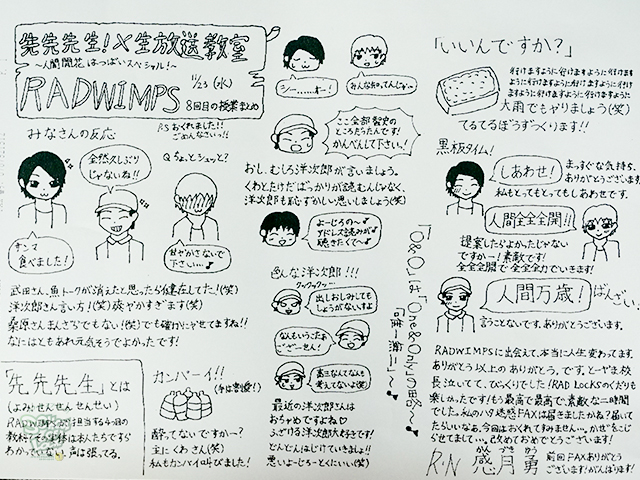 先先先生!×生放送教室
~人間開花はっぱいスペシャル!~
11/23 (水)
RADWIMPS
8回目の授業まとめ
P.S おくれました!!
ごめんなさいっ!!
みなさんの反応
全然久しぶり
じゃないね!!
Q.ちょっとシュッと?
サンマ
食べました!
甘やかさないで
下さい…♪
武田さん、魚トークが消えたと思ったら健在してた!(笑)
洋次郎さん言い方!(笑)爽やかすぎます(笑)
桑原さんまんざらでもない!(笑)でも確かにやせてますね!!
なにはともあれ元気そうでよかったです!
「先先先生」とは
(よみ:せんせんせんせい)
RADWIMPSが担当する4つ目の
教科です。
声は張ってる。
カンパーイ!!
酔ってないですかー?
主にくわさん(笑)
私もカンパイ叫びました!
シー……オー!
ここ全部智史の
ところだったんです!
かんべんして下さい!
おし、むしろ洋次郎が言いましょう。
くわとたけだばっかりが読むんじゃなく、
洋次郎も恥ずかしい思いしましょう(笑)
よーじろの~♪
アドレス読みが♪
聴きたくて~♪
色んな洋次郎!!!
クックックッ…
出しおしみしても
しょうがないすよ
なんもいうこたぁ
ござーせん!
最近の洋次郎さんは
おちゃめですよね♡
ふざける洋次郎大好きです!
どんどんはじけていきましょ!!
悪いよーじろーとくにいい(笑)
「O&O」は「One&Only」の略へ~♪
「唯一無二」~♪
「いいんですか?」
行けますように行けますように行けますように
行けますように行けますように行けますように
大雨でもやりましょう(笑)
てるてるぼうずつくります!!
黒板タイム!
しあわせ!
まっすぐな気持ち、
ありがとうございます!
私もとってもとってもしあわせです。
人間全全全開!!
提案したらよかったじゃない
ですかー!素敵です!
全全全開で全全全力でいきます!
人間万歳!
ばんざい。
言うことないです。ありがとうございます。
RADWIMPSに出会えて、本当に人生変わってます。
ありがとう以上のありがとう、です。とーやま校
長泣いてて、びっくりでした!RAD LOCKSのくだりも
楽しかったです!もう最高で最高で、素敵な二時間
でした。私のハタ迷惑FAXは届きましたかね?届いて
たらいいなぁ。今回はおくれてすみません…。かぜをこじ
らせてまして…。改めておめでとうございます!
R・N 感月勇
かんづきゆう
前回FAXありがとう
ございます!がんばります!